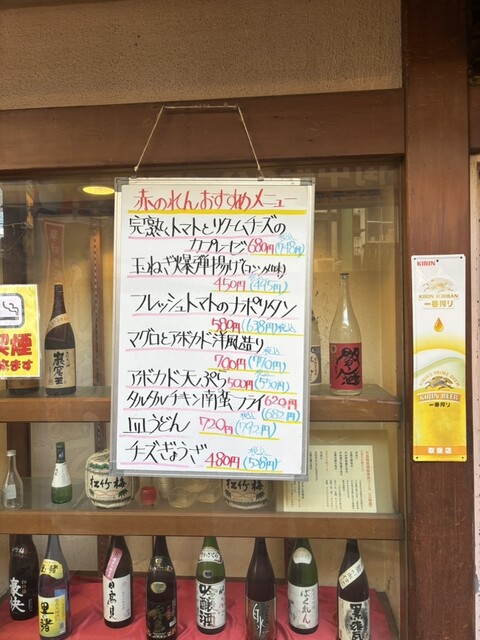 赤のれんおすすめメニュー
完熟トマトとクリームチーズの
カプレーゼ 680円(748円)税込
玉ねぎ爆弾揚げ(コンソメ味)
450円(495円)税込
フレッシュトマトのナポリタン
580円(638円)税込
マグロとアボカド洋風造り
700円(770円)税込
アボカド天ぷら500円(550円)
タルタルチキン南蛮フライ620円
税込(682円)
皿うどん 720円(792円)税込
チーズぎょうざ 480円(528円)税込
KIRIN
KIRIN ICHIBAN
一番搾り
KIRIN BEER
一番搾り
取扱店
喫煙
できます
松竹梅
松竹梅
日高見
吟醸酒
ばくれん